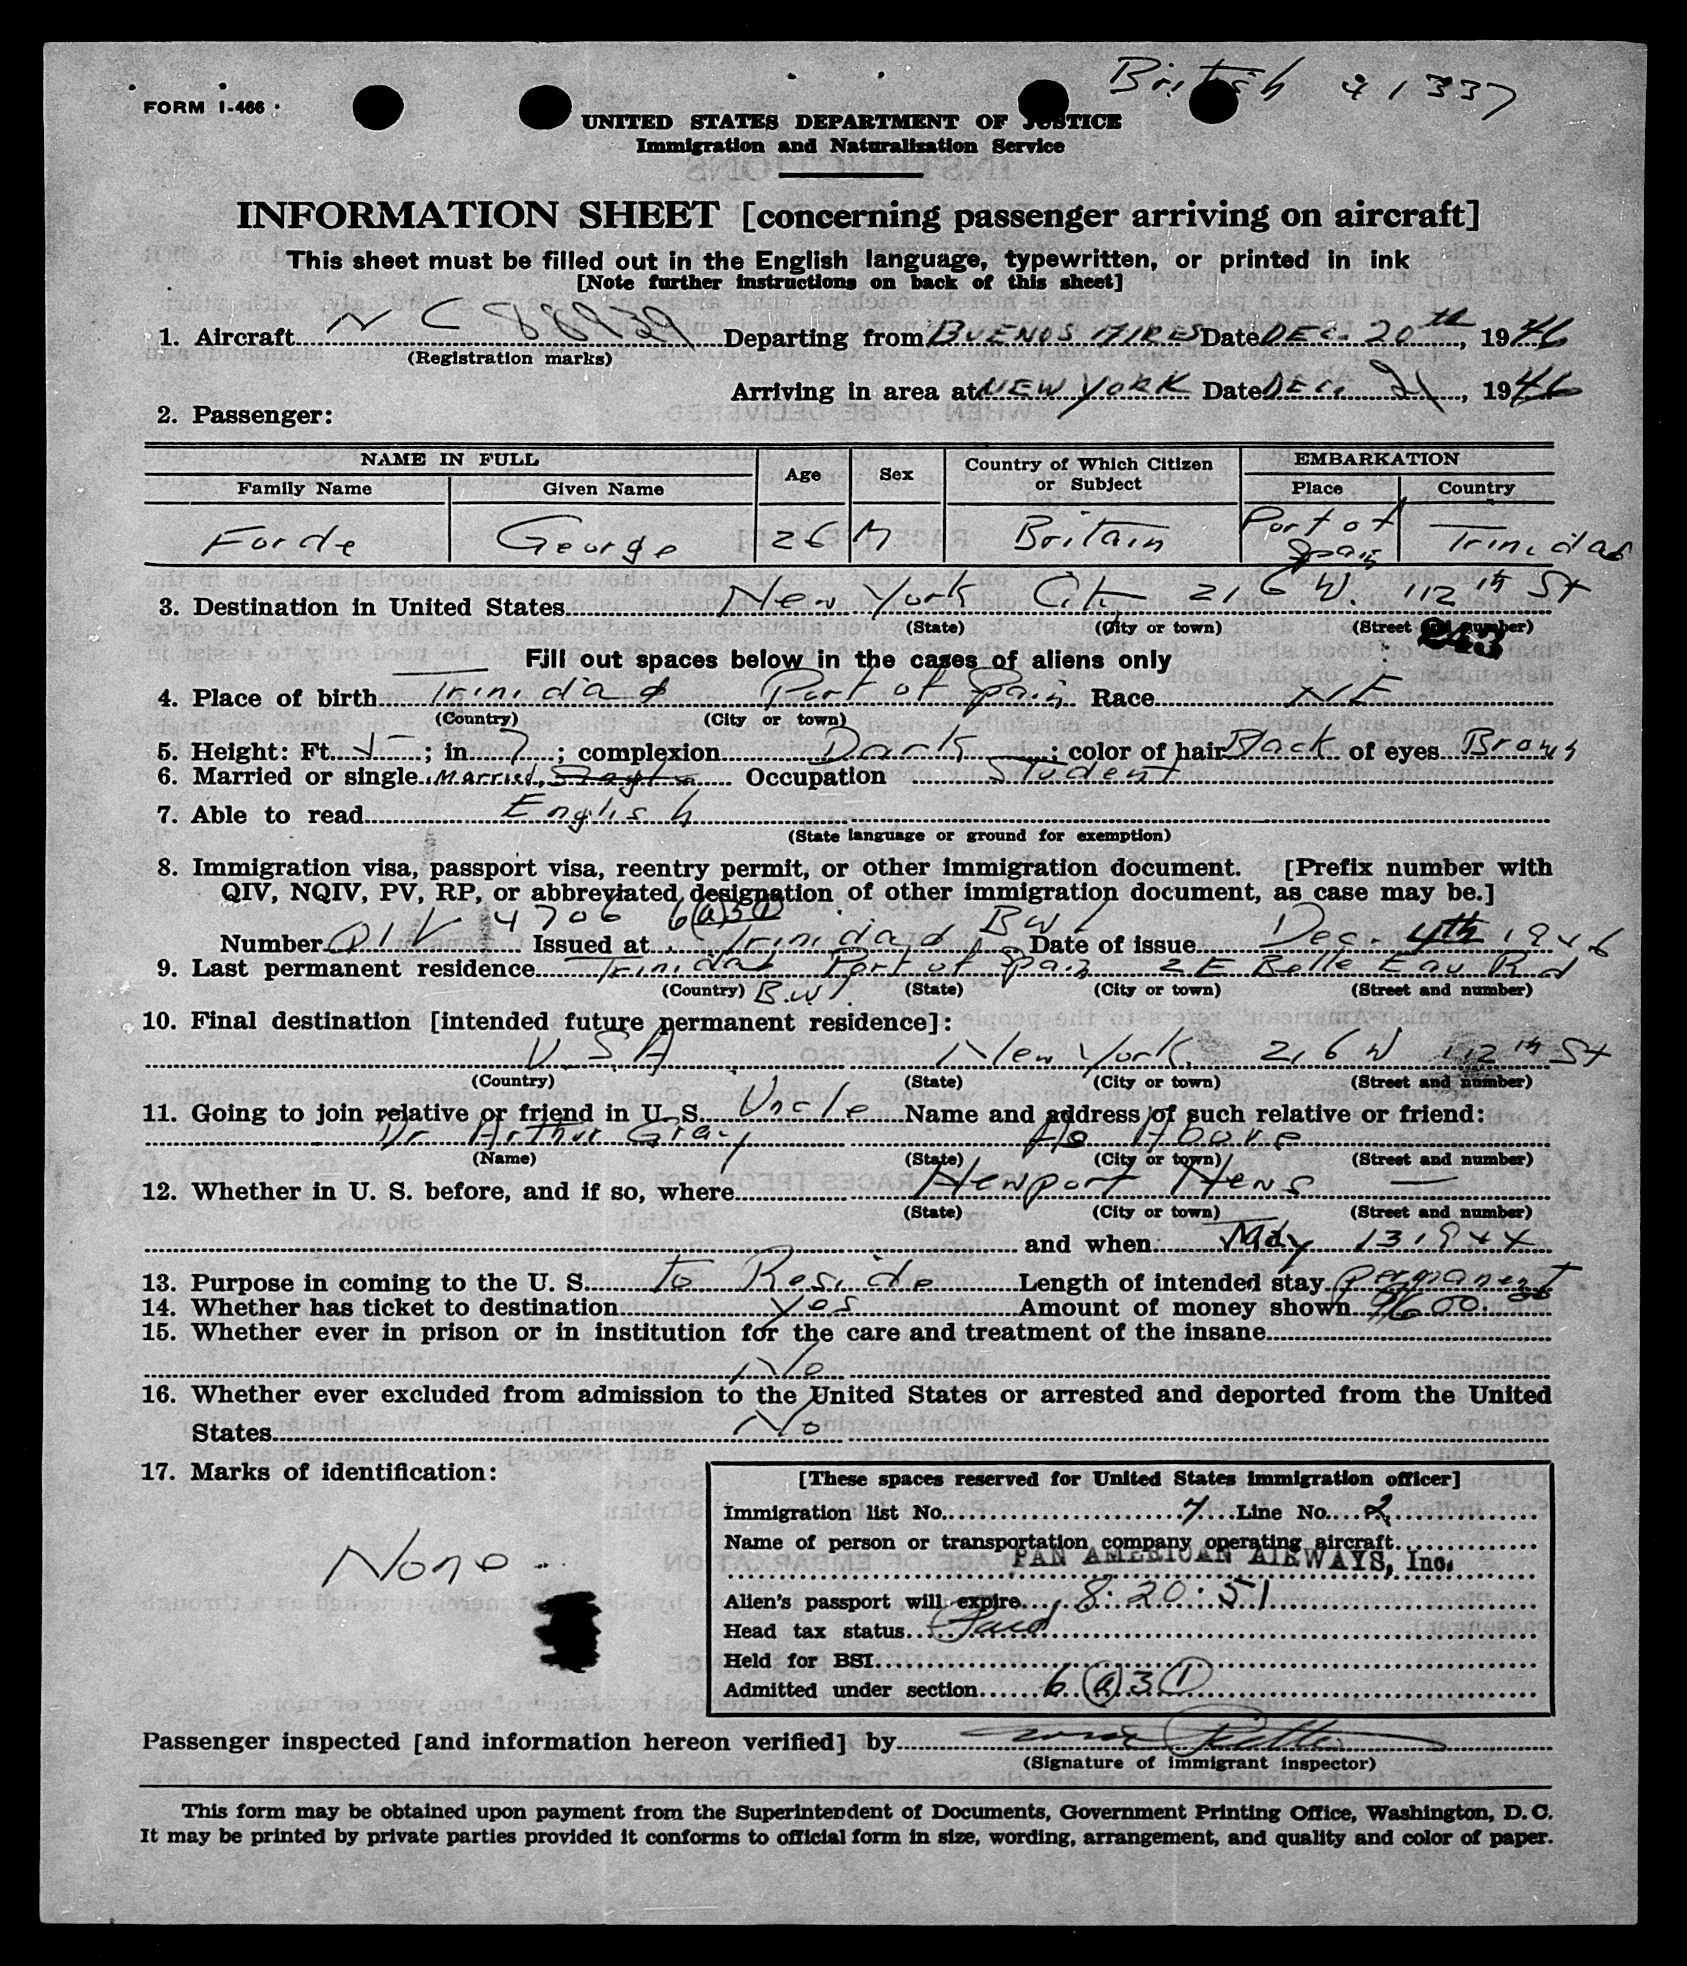 British 41337
FORM I-466
UNITED STATES DEPARTMENT OF JUSTICE
Immigration and Naturalization Service
INFORMATION SHEET [concerning passenger arriving on aircraft]
This sheet must be filled out in the English language, typewritten, or printed in ink
[Note further instructions on back of this sheet]
1. Aircraft NC 88939 Departing from BUENOS AIRES Date DEC. 20th, 1946
(Registration marks)
Arriving in area at NEW YORK Date DEC. 21, 1946
2. Passenger:
NAME IN FULL Age Sex Country of Which Citizen or Subject EMBARKATION
Family Name Given Name Place Country
Forde George 26 M Britain Port of Spain Trinidad
3. Destination in United States New York City 216 W. 112th St
(State) (City or town) (Street and number)
243
Fill out spaces below in the cases of aliens only
4. Place of birth Trinidad Port of Spain Race NE
(Country) (City or town)
5. Height: Ft. 5; in. 7; complexion Dark; color of hair Black of eyes Brown
6. Married or single Married, Single Occupation Student
7. Able to read English
(State language or ground for exemption)
8. Immigration visa, passport visa, reentry permit, or other immigration document. [Prefix number with
QIV, NQIV, PV, RP, or abbreviated designation of other immigration document, as case may be.]
Number QIV 4706 6(a)3(1) Issued at Trinidad BWI Date of issue Dec. 4th 1946
9. Last permanent residence Trinidad Port of Spain 2E Belle Eau Rd
(Country) B.W.I. (State) (City or town) (Street and number)
10. Final destination [intended future permanent residence]:
USA New York, 216 W 112th St
(Country) (State) (City or town) (Street and number)
11. Going to join relative or friend in U. S. Uncle Name and address of such relative or friend:
Dr Arthur Gray As Above
(Name) (State) (City or town) (Street and number)
12. Whether in U. S. before, and if so, where Newport News —
(State) (City or town) (Street and number)
and when May 13 1944
13. Purpose in coming to the U. S. To Reside Length of intended stay Permanent
14. Whether has ticket to destination yes Amount of money shown
15. Whether ever in prison or in institution for the care and treatment of the insane
No
16. Whether ever excluded from admission to the United States or arrested and deported from the United
States No
17. Marks of identification:
None
[These spaces reserved for United States immigration officer]
Immigration list No. 7 Line No. 2
Name of person or transportation company operating aircraft
PAN AMERICAN AIRWAYS, Inc.
Alien's passport will expire 8-20-51
Head tax status Paid
Held for BSI
Admitted under section 6(a)3(1)
Passenger inspected [and information hereon verified] by
(Signature of immigrant inspector)
This form may be obtained upon payment from the Superintendent of Documents, Government Printing Office, Washington, D. C.
It may be printed by private parties provided it conforms to official form in size, wording, arrangement, and quality and color of paper.